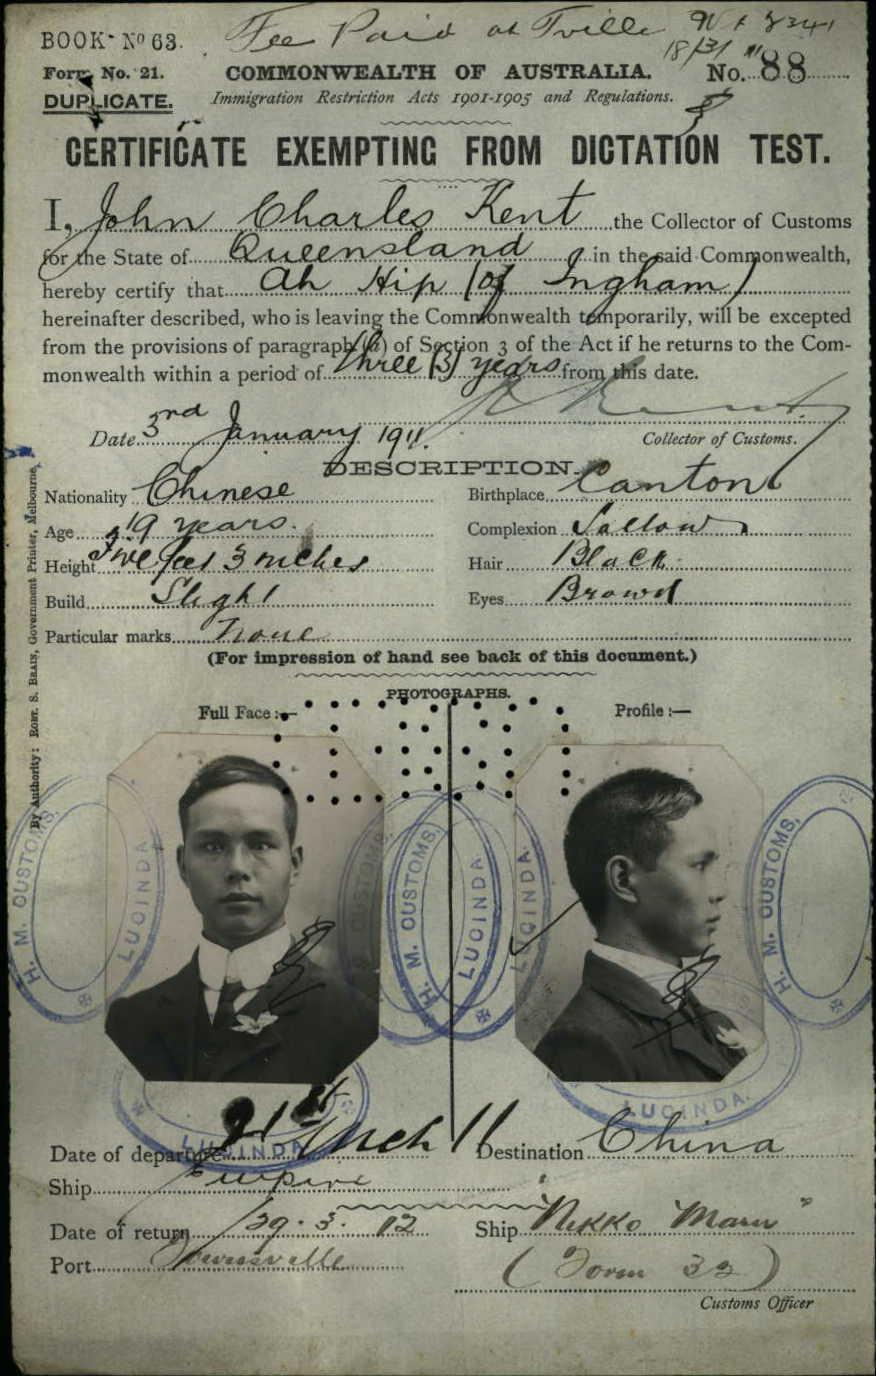 BOOK No 63. Fee Paid at Tville
18/3/11
Form No. 21. COMMONWEALTH OF AUSTRALIA. No. 88
DUPLICATE. Immigration Restriction Acts 1901-1905 and Regulations.
CERTIFICATE EXEMPTING FROM DICTATION TEST.
I, John Charles Kent the Collector of Customs
for the State of Queensland in the said Commonwealth,
hereby certify that Ah Hip (of Ingham)
hereinafter described, who is leaving the Commonwealth temporarily, will be excepted
from the provisions of paragraph (a) of Section 3 of the Act if he returns to the Com-
monwealth within a period of three (3) years from this date.
Date 3rd January 1911. Collector of Customs.
DESCRIPTION.
Nationality Chinese Birthplace Canton
Age 19 years. Complexion Sallow
Height Five feet 3 inches Hair Black
Build Slight Eyes Brown
Particular marks None
(For impression of hand see back of this document.)
PHOTOGRAPHS.
Full Face :— Profile :—
H. M. CUSTOMS, LUCINDA.
H. M. CUSTOMS, LUCINDA.
LUCINDA.
H. M. CUSTOMS,
LUCINDA.
LUCINDA.
Date of departure 21st Mch 11 Destination China
Ship Empire
Date of return 29.3.12 Ship "Nikko Maru"
Port Townsville (Form 32)
Customs Officer
By Authority: ROBT. S. BRAIN, Government Printer, Melbourne.